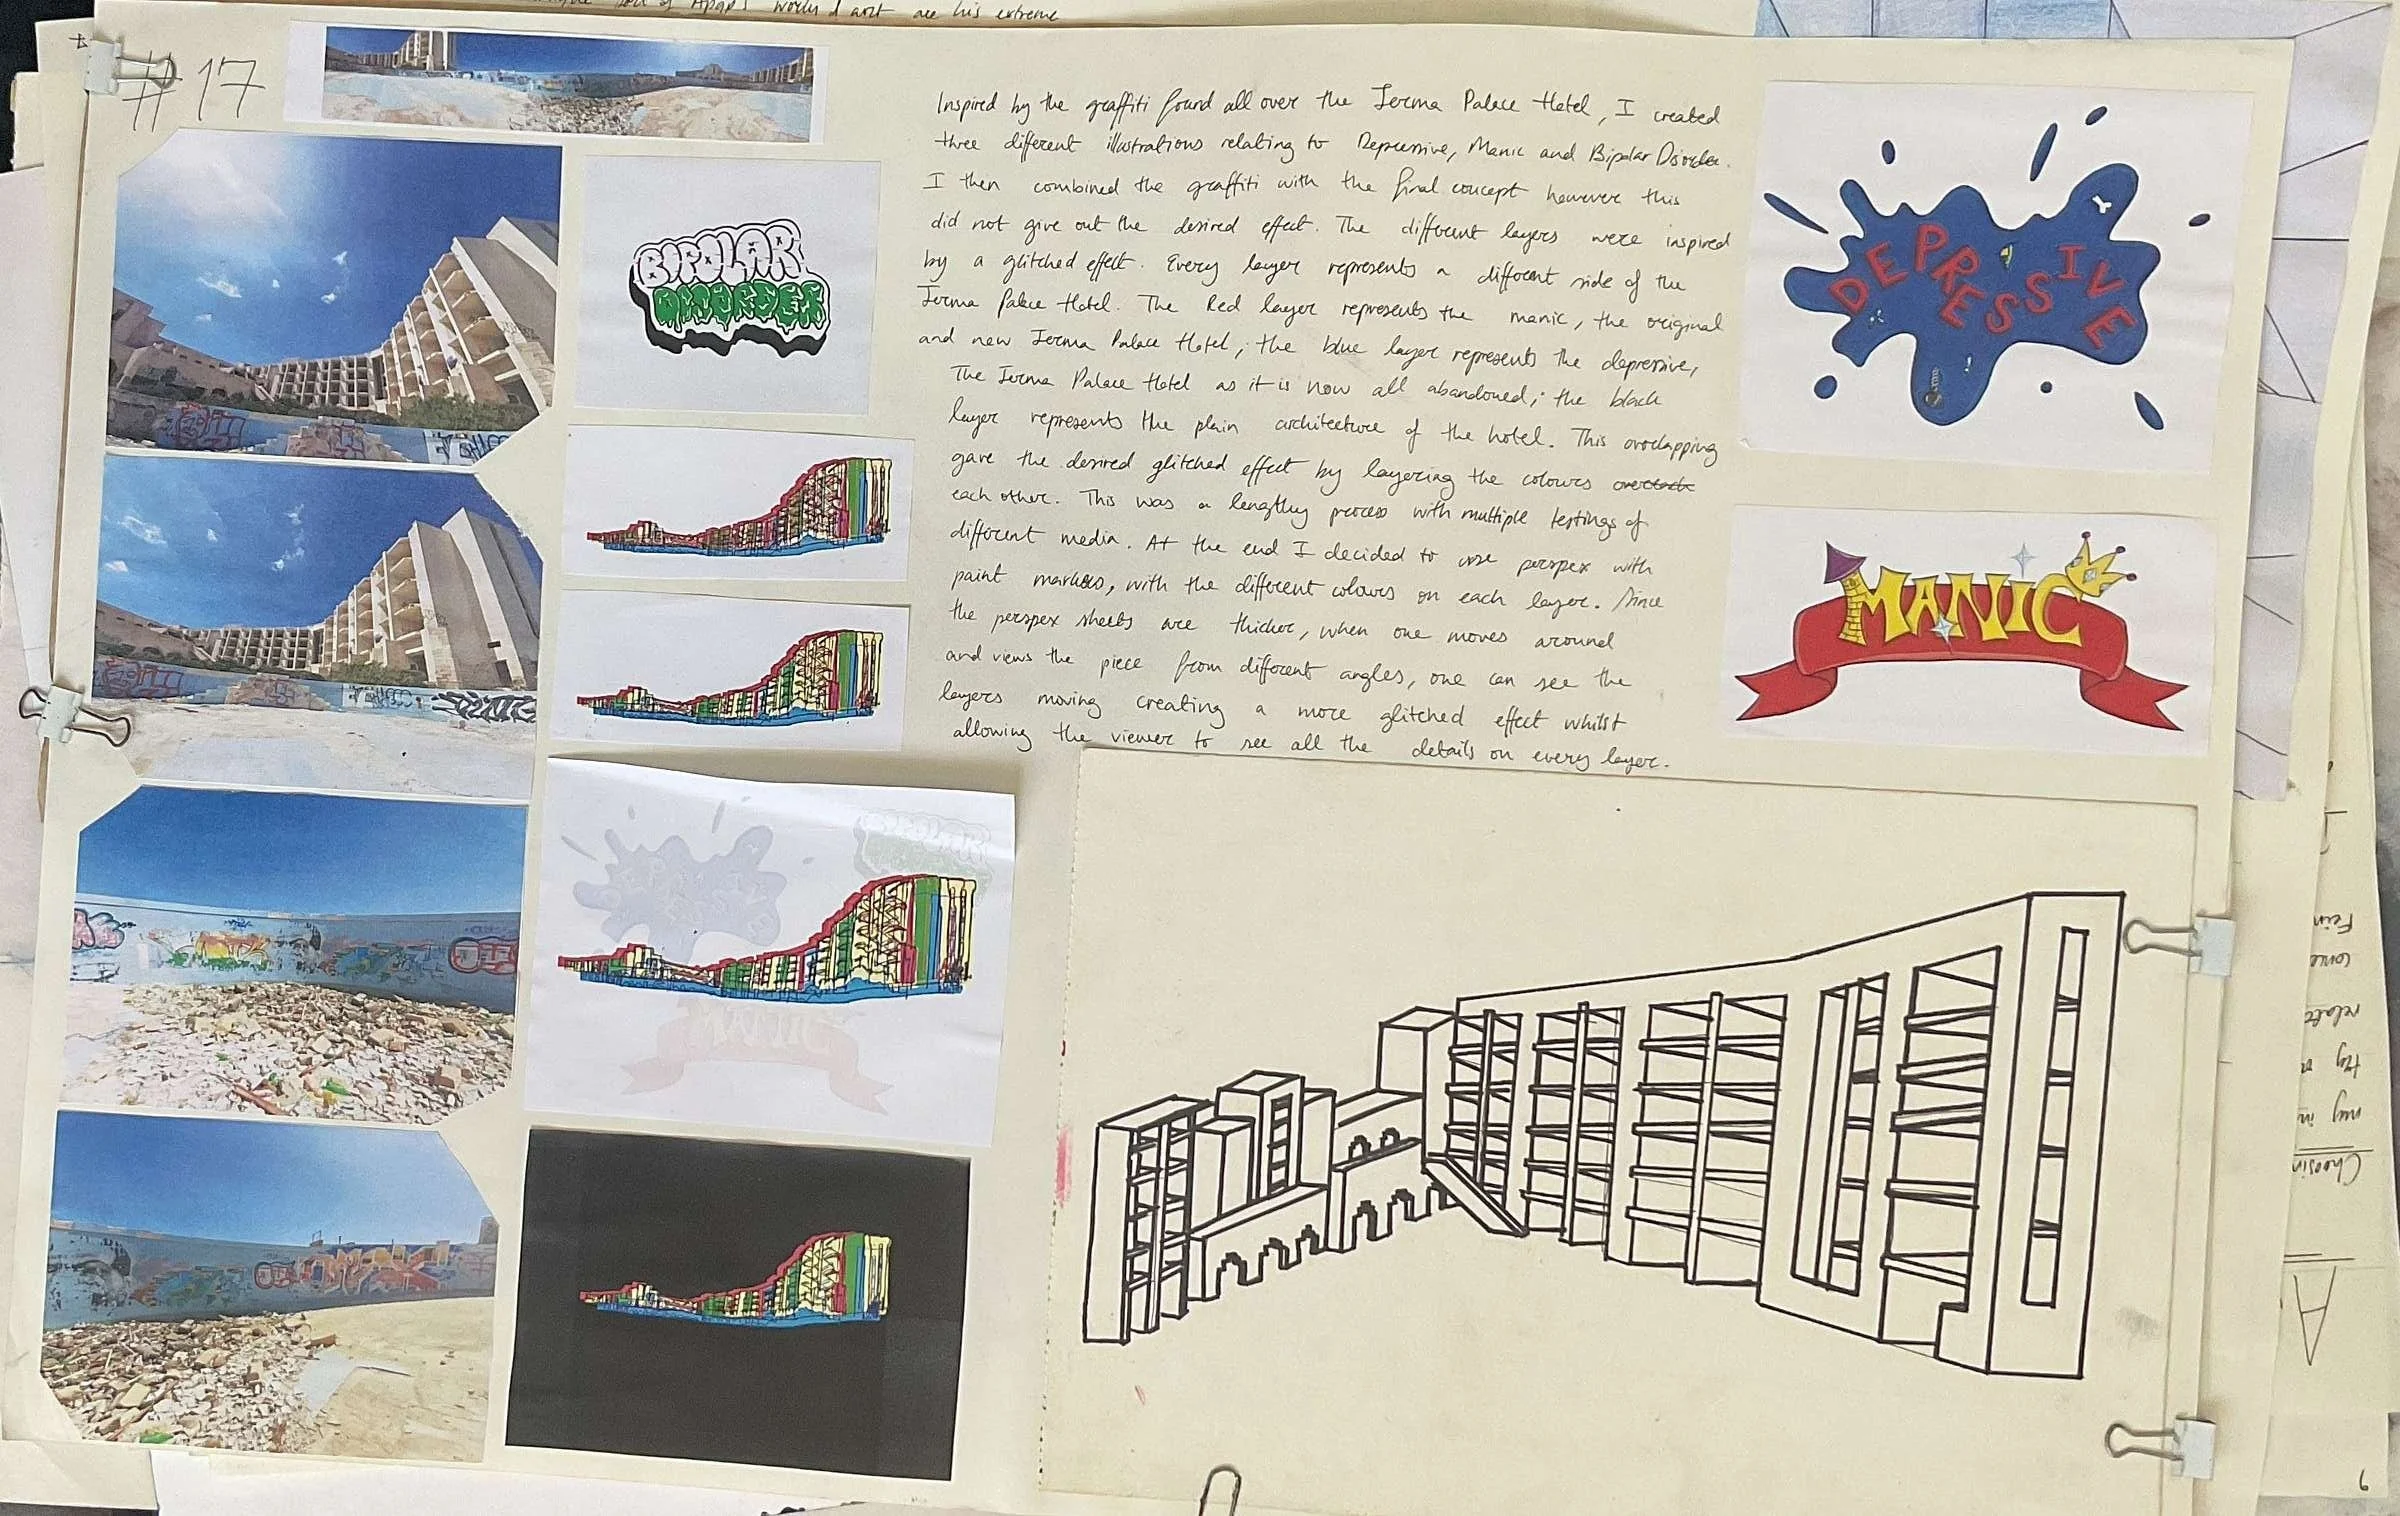 works d art are his extreme
#17
Inspired by the graffiti found all over the Jerma Palace Hotel, I created
three different illustrations relating to Depressive, Manic and Bipolar Disorder.
I then combined the graffiti with the final concept however this
did not give out the desired effect. The different layers were inspired
by a glitched effect. Every layer represents a different side of the
Jerma Palace Hotel. The Red layer represents the manic, the original
and new Jerma Palace Hotel; the blue layer represents the depressive,
The Jerma Palace Hotel as it is now all abandoned; the black
layer represents the plain architecture of the hotel. This overlapping
gave the desired glitched effect by layering the colours
each other. This was a lengthy process with multiple testings of
different media. At the end I decided to use perspex with
paint markers, with the different colours on each layer. Since
the perspex sheets are thicker, when one moves around
and views the piece from different angles, one can see the
layers moving creating a more glitched effect whilst
allowing the viewer to see all the details on every layer.
BIPOLAR
DISORDER
DEPRESSIVE
MANIC
BIPOLAR
DEPRESSIVE
MANIC
Choosin
my in
try
relate
come
Fein
A
9